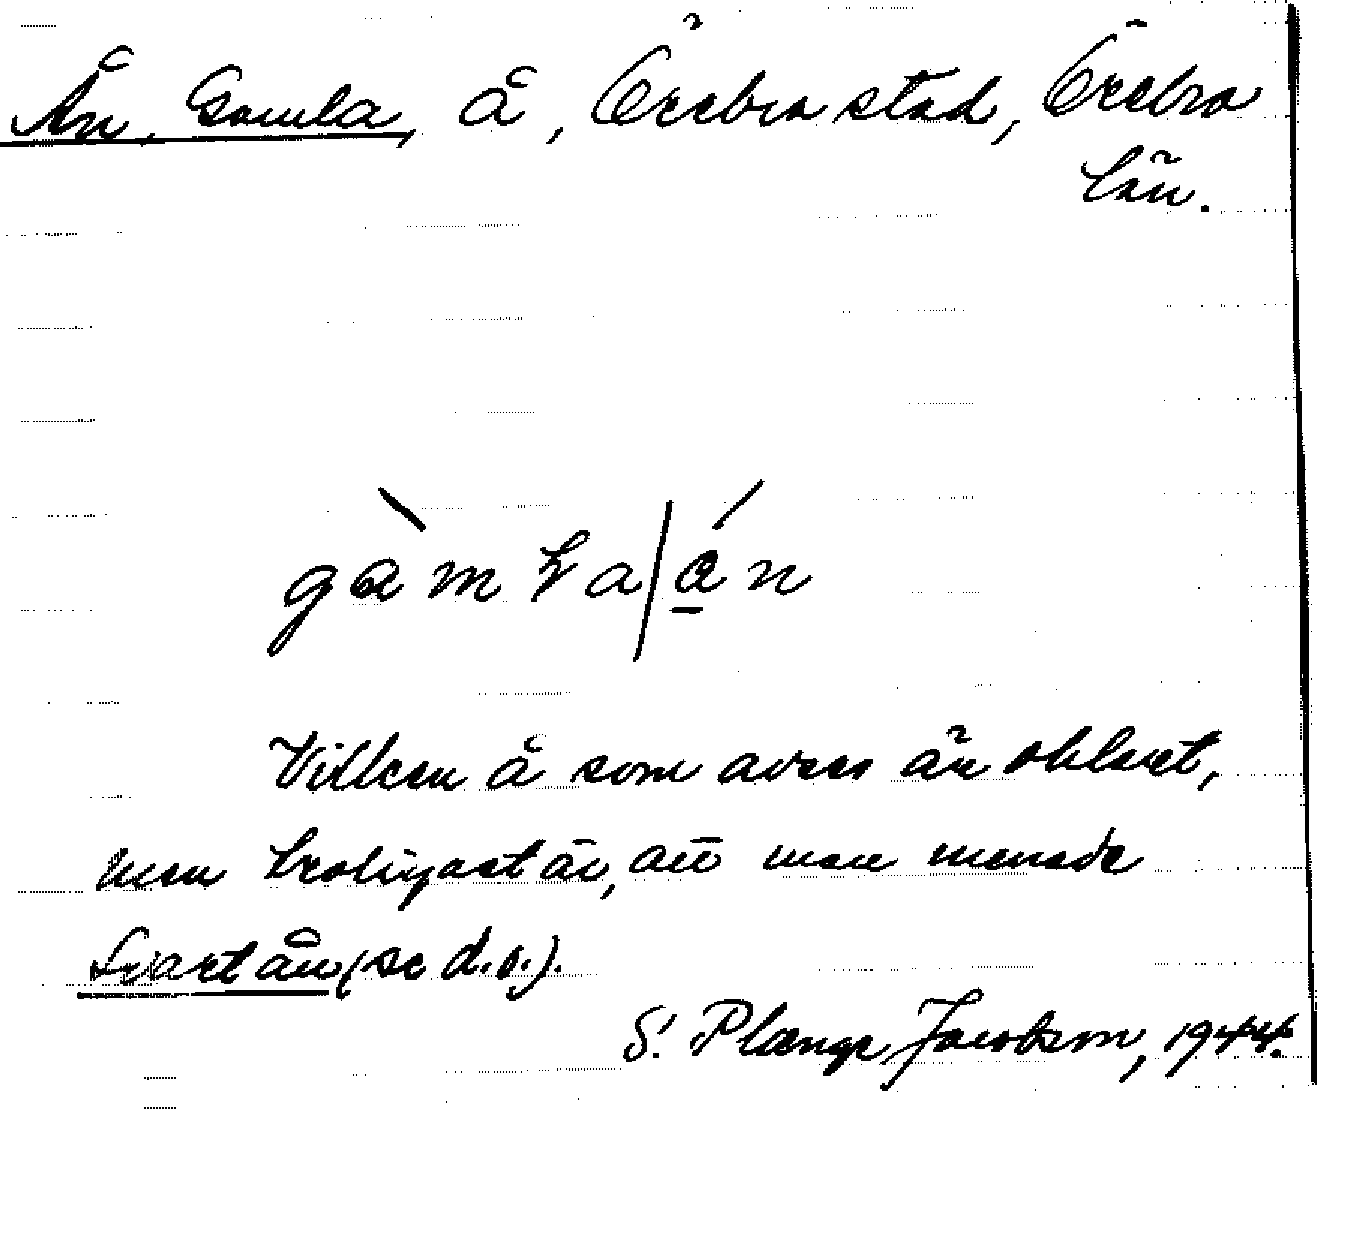 Ån, Gamla, å, Örebro stad, Örebro
län.
gàmla/án
Vilken å som avses är oklart,
men troligast är, att man menade
Svartån (se d.o.).
S. Plænge Jacobson, 1944.